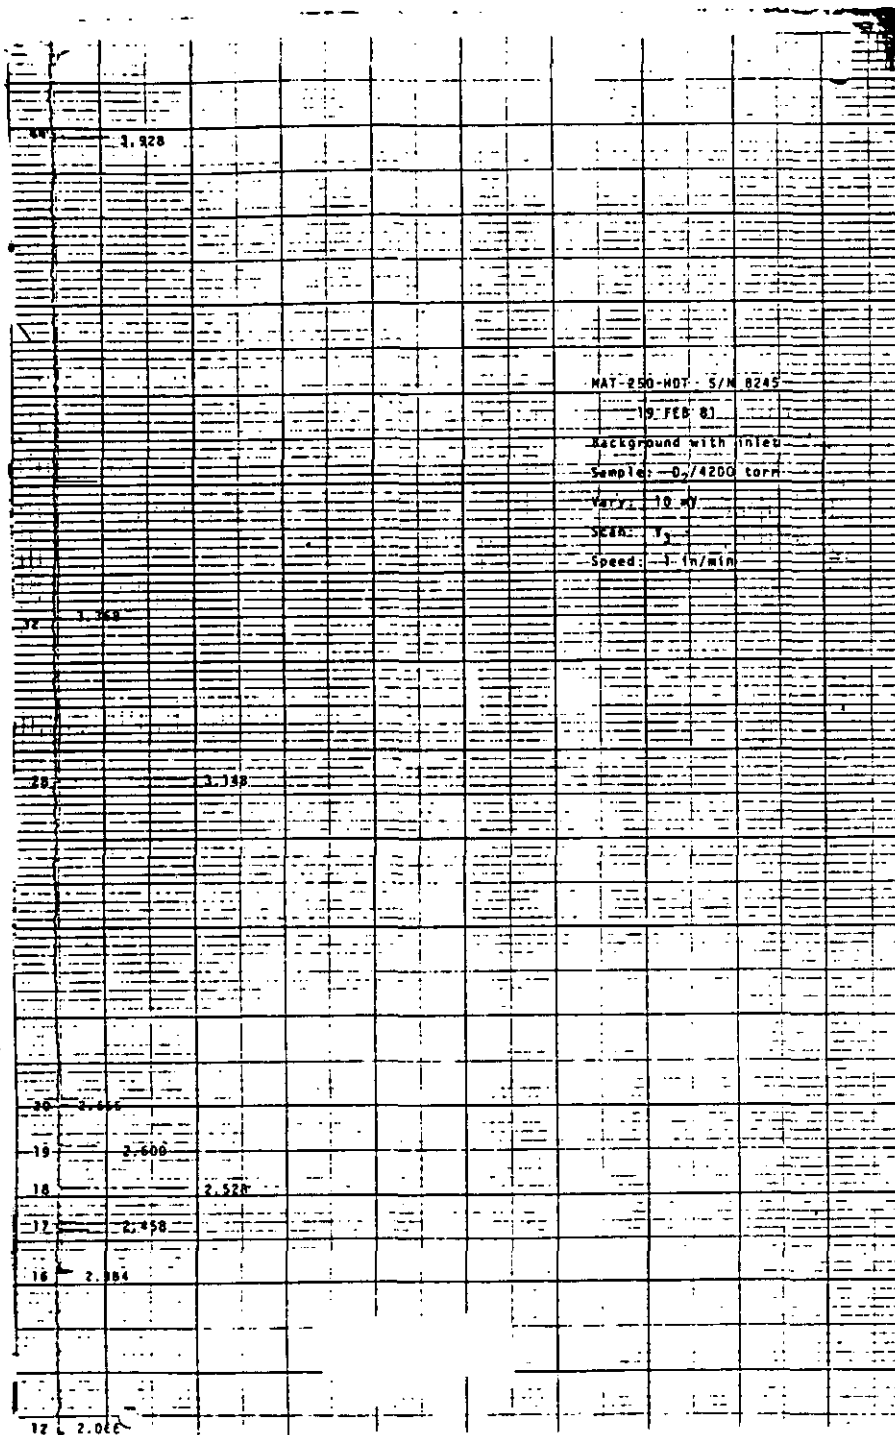 44 3.928
MAT-250-HDT S/N 8245
19 FEB 81
Background with inlet
Sample: D2/4200 torr
Vary: 10 mV
Scan: V3
Speed: 1 in/min
32 3.368
28 3.148
20
19 2.600
18 2.528
17 2.458
16 2.384
12 2.066